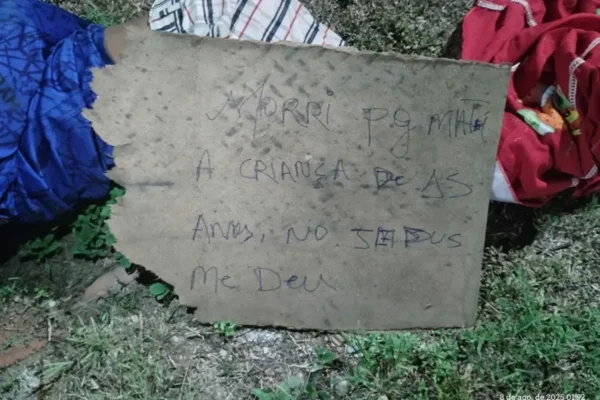 MORRI PQ MATEI
A CRIANÇA DE 15
ANOS, NO
ME DEU
8 de ago. de 2025 01:02